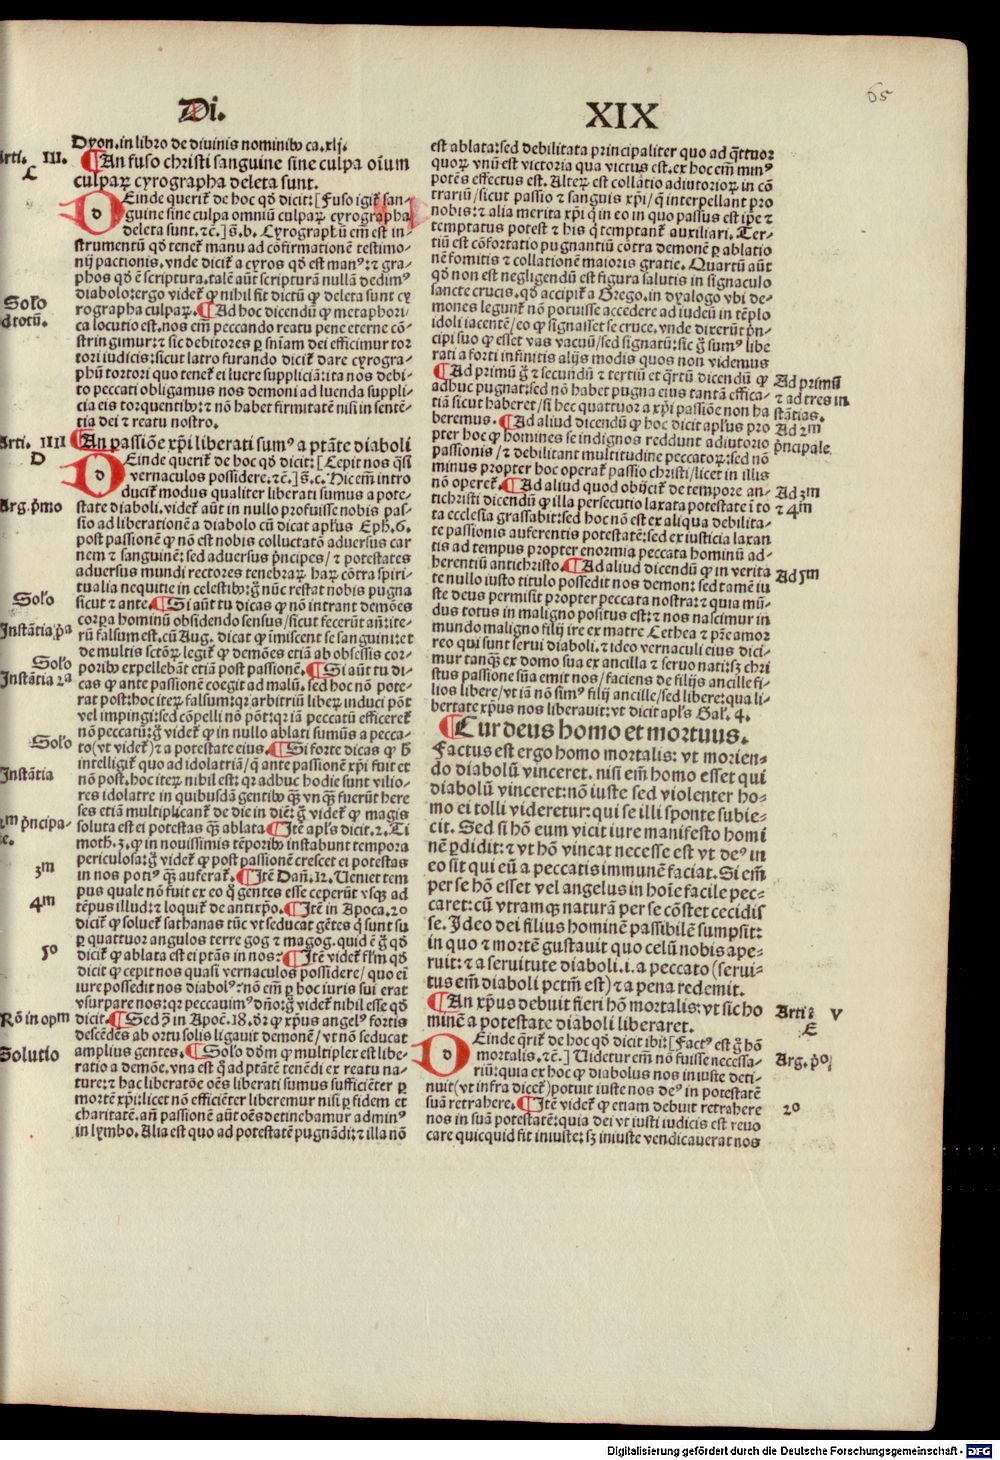 Di.
XIX
65
Dyon. in libro de diuinis nominibꝰ ca. xlj.
Arti. III.
C
¶ An fuso christi sanguine sine culpa oīum
culpaꝝ cyrographa deleta sunt.
DEinde querit᷑ de hoc qđ dicit: [Fuso igit᷑ san-
guine sine culpa omniū culpaꝝ cyrographa
deleta sunt. ⁊c̄.] §. b. Cyrographū em̄ est in-
strumentū qđ tenet᷑ manu ad cōfirmationē testimo-
nij pactionis. vnde dicit᷑ a cyros qđ est manꝰ: ⁊ gra-
phos qđ ē scriptura. talē aūt scripturā nullā dedimꝰ
diabolo: ergo videt᷑ ꝙ nihil sit dictū ꝙ deleta sunt cy
rographa culpaꝝ. ¶ Ad hoc dicendū ꝙ metaphori-
ca locutio est. nos em̄ peccando reatu pene eterne cō-
stringimur: ⁊ sic debitores ꝑ sn̄iam dei efficimur tor
tori iudicis: sicut latro furando dicit᷑ dare cyrogra-
phū tortori quo tenet᷑ ei luere suppliciā: ita nos debi-
to peccati obligamus nos demoni ad luenda suppli-
cia eis torquentibꝰ: ⁊ nō habet firmitatē nisi in sentē-
tia dei ⁊ reatu nostro.
Solo
ad totū.
Arti. IIII
D
¶ An passiōe xp̄i liberati sumꝰ a ptāte diaboli
DEinde querit᷑ de hoc qđ dicit: [Cepit nos q̄si
vernaculos possidere. ⁊c̄.] §. c. Hic em̄ intro
ducit᷑ modus qualiter liberati sumus a pote-
state diaboli. videt᷑ aūt in nullo profuisse nobis pas-
sio ad liberationē a diabolo cū dicat apl̄us Eph̄. 6.
post passionē ꝙ nō est nobis colluctatō aduersus car
nem ⁊ sanguinē: sed aduersus p̄ncipes/ ⁊ potestates
aduersus mundi rectores tenebraꝝ haꝝ cōtra spiri-
tualia nequitie in celestibꝰ: g̊ nūc restat nobis pugna
sicut ⁊ ante. ¶ Si aūt tu dicas ꝙ nō intrant demōes
corpa hominū obsidendo sensus/ sicut fecerūt an̄: ite-
rū falsum est. cū Aug. dicat ꝙ imiscent se sanguini: et
de multis sctōꝝ legit᷑ ꝙ demōes etiā ab obsessis cor-
poribꝰ expellebāt etiā post passionē. ¶ Si aūt tu di-
cas ꝙ ante passionē coegit ad malū. sed hoc nō pote-
rat post: hoc iteꝝ falsum: qꝛ arbitriū liberꝝ induci pōt
vel impingi: sed cōpelli nō pōt: qꝛ iā peccatū efficeret᷑
nō peccatū: g̊ videt᷑ ꝙ in nullo ablati sumus a pecca-
to (vt videt᷑) ⁊ a potestate eius. ¶ Si forte dicas ꝙ h̄
intelligit᷑ quo ad idolatriā/ q̄ ante passionē xp̄i fuit et
nō post. hoc iteꝝ nihil est: qꝛ adhuc hodie sunt vilio-
res idolatre in quibusdā gentibꝰ q̄ꝫ vnq̄ꝫ fuerūt here
ses etiā multiplicant᷑ de die in diē: g̊ videt᷑ ꝙ magis
soluta est ei potestas q̄ꝫ ablata ¶ Itē apl̄s dicit. 2. Ti
moth̄. 3. ꝙ in nouissimis tēporibꝰ instabunt tempora
periculosa: g̊ videt᷑ ꝙ post passionē crescet ei potestas
in nos potiꝰ q̄ꝫ auferat᷑. ¶ Itē Dan̄. 12. Ueniet tem
pus quale nō fuit ex eo q̊ gentes esse ceperūt vsqꝫ ad
tēpus illud: ⁊ loquit᷑ de antixp̄o. ¶ Itē in Apoca. 20
dicit᷑ ꝙ soluet᷑ sathanas tūc vt seducat gētes q̄ sunt su
ꝑ quattuor angulos terre gog ⁊ magog. quid ē g̊ qđ
dicit᷑ ꝙ ablata est ei ptās in nos? ¶ Itē videt᷑ fl̄m qđ
dicit ꝙ cepit nos quasi vernaculos possidere/ quo ei᷑
iure possedit nos diabolꝰ: nō em̄ ꝑ hoc iuris sui erat
vsurpare nos: qꝛ peccauimꝰ dn̄o: g̊ videt᷑ nihil esse qđ
dicit. ¶ Sed ꝯ̄ in Apoc̄. 18. dr̄ ꝙ xp̄us angelꝰ fortis
descēdēs ab ortu solis ligauit demonē/ vt nō seducat
amplius gentes. ¶ Solo dōm ꝙ multiplex est libe-
ratio a demōe. vna est q̊ ad ptātē tenēdi ex reatu na-
ture: ⁊ hac liberatōe oēs liberati sumus sufficiēter ꝑ
mortē xp̄i: licet nō efficiēter liberemur nisi ꝑ fidem et
charitatē. an̄ passionē aūt oēs detinebamur adminꝰ
in lymbo. Alia est quo ad potestatē pugnādi: ⁊ illa nō
Arg. p̄mo
Solo
Instātia p̄a
Solo
Instātia 2ª
Solo
Instātia
2m p̄ncipa-
le.
3m
4m
5º
Rō in opm
Solutio
est ablata: sed debilitata principaliter quo ad q̄ttuor
quoꝝ vnū est victoria qua victus est. ex hoc em̄ minꝰ
potēs effectus est. Alteꝝ est collatio adiutorioꝝ in cō
trariū/ sicut passio ⁊ sanguis xp̄i/ q̄ interpellant pro
nobis: ⁊ alia merita xp̄i q̄ in eo in quo passus est ip̄e ⁊
temptatus potest ⁊ his q̄ temptant᷑ auxiliari. Ter-
tiū est cōfortatio pugnantiū cōtra demonē ꝑ ablatio
nē fomitis ⁊ collationē maioris gratie. Quartū aūt
qđ non est negligendū est figura salutis in signaculo
sancte crucis. qđ accipit᷑ a Grego. in dyalogo vbi de-
mones legunt᷑ nō potuisse accedere ad iudeū in tēplo
idoli iacentē/ eo ꝙ signasset se cruce. vnde dixerūt p̄n-
cipi suo ꝙ esset vas vacuū/ sed signatū: sic g̊ sumꝰ libe
rati a forti infinitis alijs modis quos non videmus
¶ Ad primū g̊ ⁊ secundū ⁊ tertiū et q̄rtū dicendū ꝙ
adhuc pugnat: sed nō habet pugna eius tantā effica-
tiā sicut haberet/ si hec quattuor a xp̄i passiōe non ha
beremus. ¶ Ad aliud dicendū ꝙ hoc dicit apl̄us pro
pter hoc ꝙ homines se indignos reddunt adiutorio
passionis/ ⁊ debilitant multitudine peccatoꝝ: sed nō
minus propter hoc operat᷑ passio christi/ licet in illis
nō operet᷑. ¶ Ad aliud quod obijcit᷑ de tempore an-
tichristi dicendū ꝙ illa persecutio laxata potestate ī to
ta ecclesia grassabit᷑: sed hoc nō est ex aliqua debilita-
te passionis auferentis potestatē: sed ex iusticia laxan
tis ad tempus propter enormia peccata hominū ad-
herentiū antichristo. ¶ Ad aliud dicendū ꝙ in verita
te nullo iusto titulo possedit nos demon: sed tamē iu
ste deus permisit propter peccata nostra: ⁊ quia mū-
dus totus in maligno positus est: ⁊ nos nascimur in
mundo maligno filij ire ex matre Cethea ⁊ p̄re amor
reo qui sunt serui diaboli. ⁊ ideo vernaculi eius dici-
mur tanq̄ꝫ ex domo sua ex ancilla ⁊ seruo nati: sꝫ chri
stus passione sua emit nos/ faciens de filijs ancille fi-
lios libere/ vt iā nō simꝰ filij ancille/ sed libere: qua li-
bertate xp̄us nos liberauit: vt dicit apl̄s Gal̄. 4.
Ad primū
⁊ ad tres in
stātias.
Ad 2m
p̄ncipale
Ad 3m
⁊ 4m
Ad 5m
¶ Cur deus homo et mortuus.
Factus est ergo homo mortalis: vt morien-
do diabolū vinceret. nisi em̄ homo esset qui
diabolū vinceret: nō iuste sed violenter ho-
mo ei tolli videretur: qui se illi sponte subie-
cit. Sed si hō eum vicit iure manifesto homi
nē ꝑdidit: ⁊ vt hō vincat necesse est vt deꝰ in
eo sit qui eū a peccatis immunē faciat. Si em̄
per se hō esset vel angelus in hoīe facile pec-
caret: cū vtramqꝫ naturā per se cōstet cecidis
se. Ideo dei filius hominē passibilē sumpsit:
in quo ⁊ mortē gustauit quo celū nobis ape-
ruit: ⁊ a seruitute diaboli. i. a peccato (serui-
tus em̄ diaboli pctm̄ est) ⁊ a pena redemit.
¶ An xp̄us debuit fieri hō mortalis: vt sic ho
minē a potestate diaboli liberaret.
DEinde q̄rit᷑ de hoc qđ dicit ibi: [Factꝰ est g̊ hō
mortalis. ⁊c̄.] Uidetur em̄ nō fuisse necessa-
riū: quia ex hoc ꝙ diabolus nos iniuste deti-
nuit (vt infra dicet᷑) potuit iuste nos deꝰ in potestatē
suā retrahere. ¶ Itē videt᷑ ꝙ etiam debuit retrahere
nos in suā potestatē: quia dei vt iusti iudicis est reuo
care quicquid fit iniuste: sꝫ iniuste vendicauerat nos
Arti: V
E
Arg. p̄o
2º
Digitalisierung gefördert durch die Deutsche Forschungsgemeinschaft - DFG